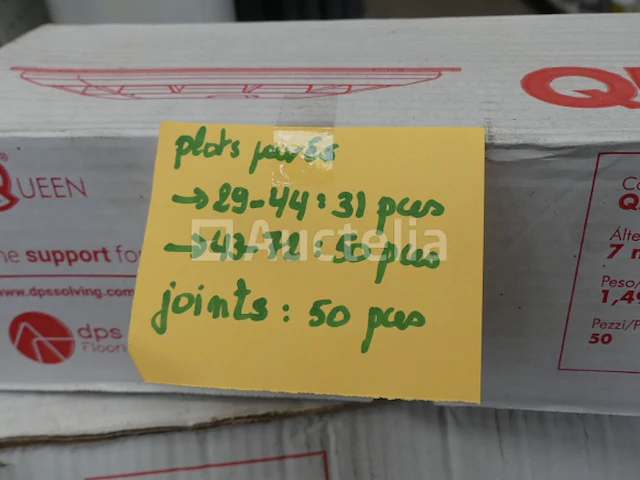 Q
QUEEN
he support fo
www.dpssolving.com
dps
Floorin
plots
→ 29-44 : 31 pces
→ 43-72 : 50 pces
joints : 50 pces
Auctelia
Q
Alte
7 m
Peso/
1,49
Pezzi/P
50